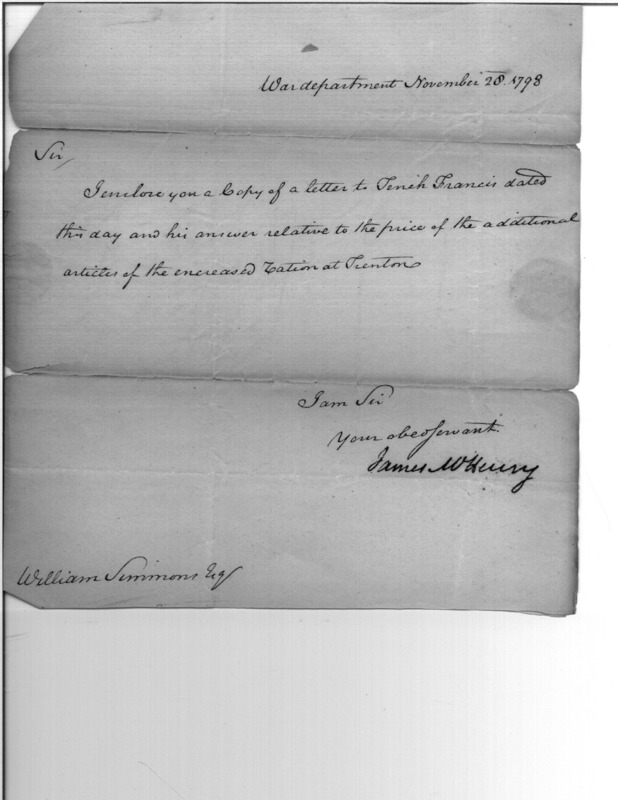 War department November 28. 1798
Sir
I enclose you a Copy of a letter to Tench Francis dated
this day and his answer relative to the price of the additional
articles of the encreased Ration at Trenton
I am Sir
Your obed Servant.
James McHenry
William Simmons Esqr